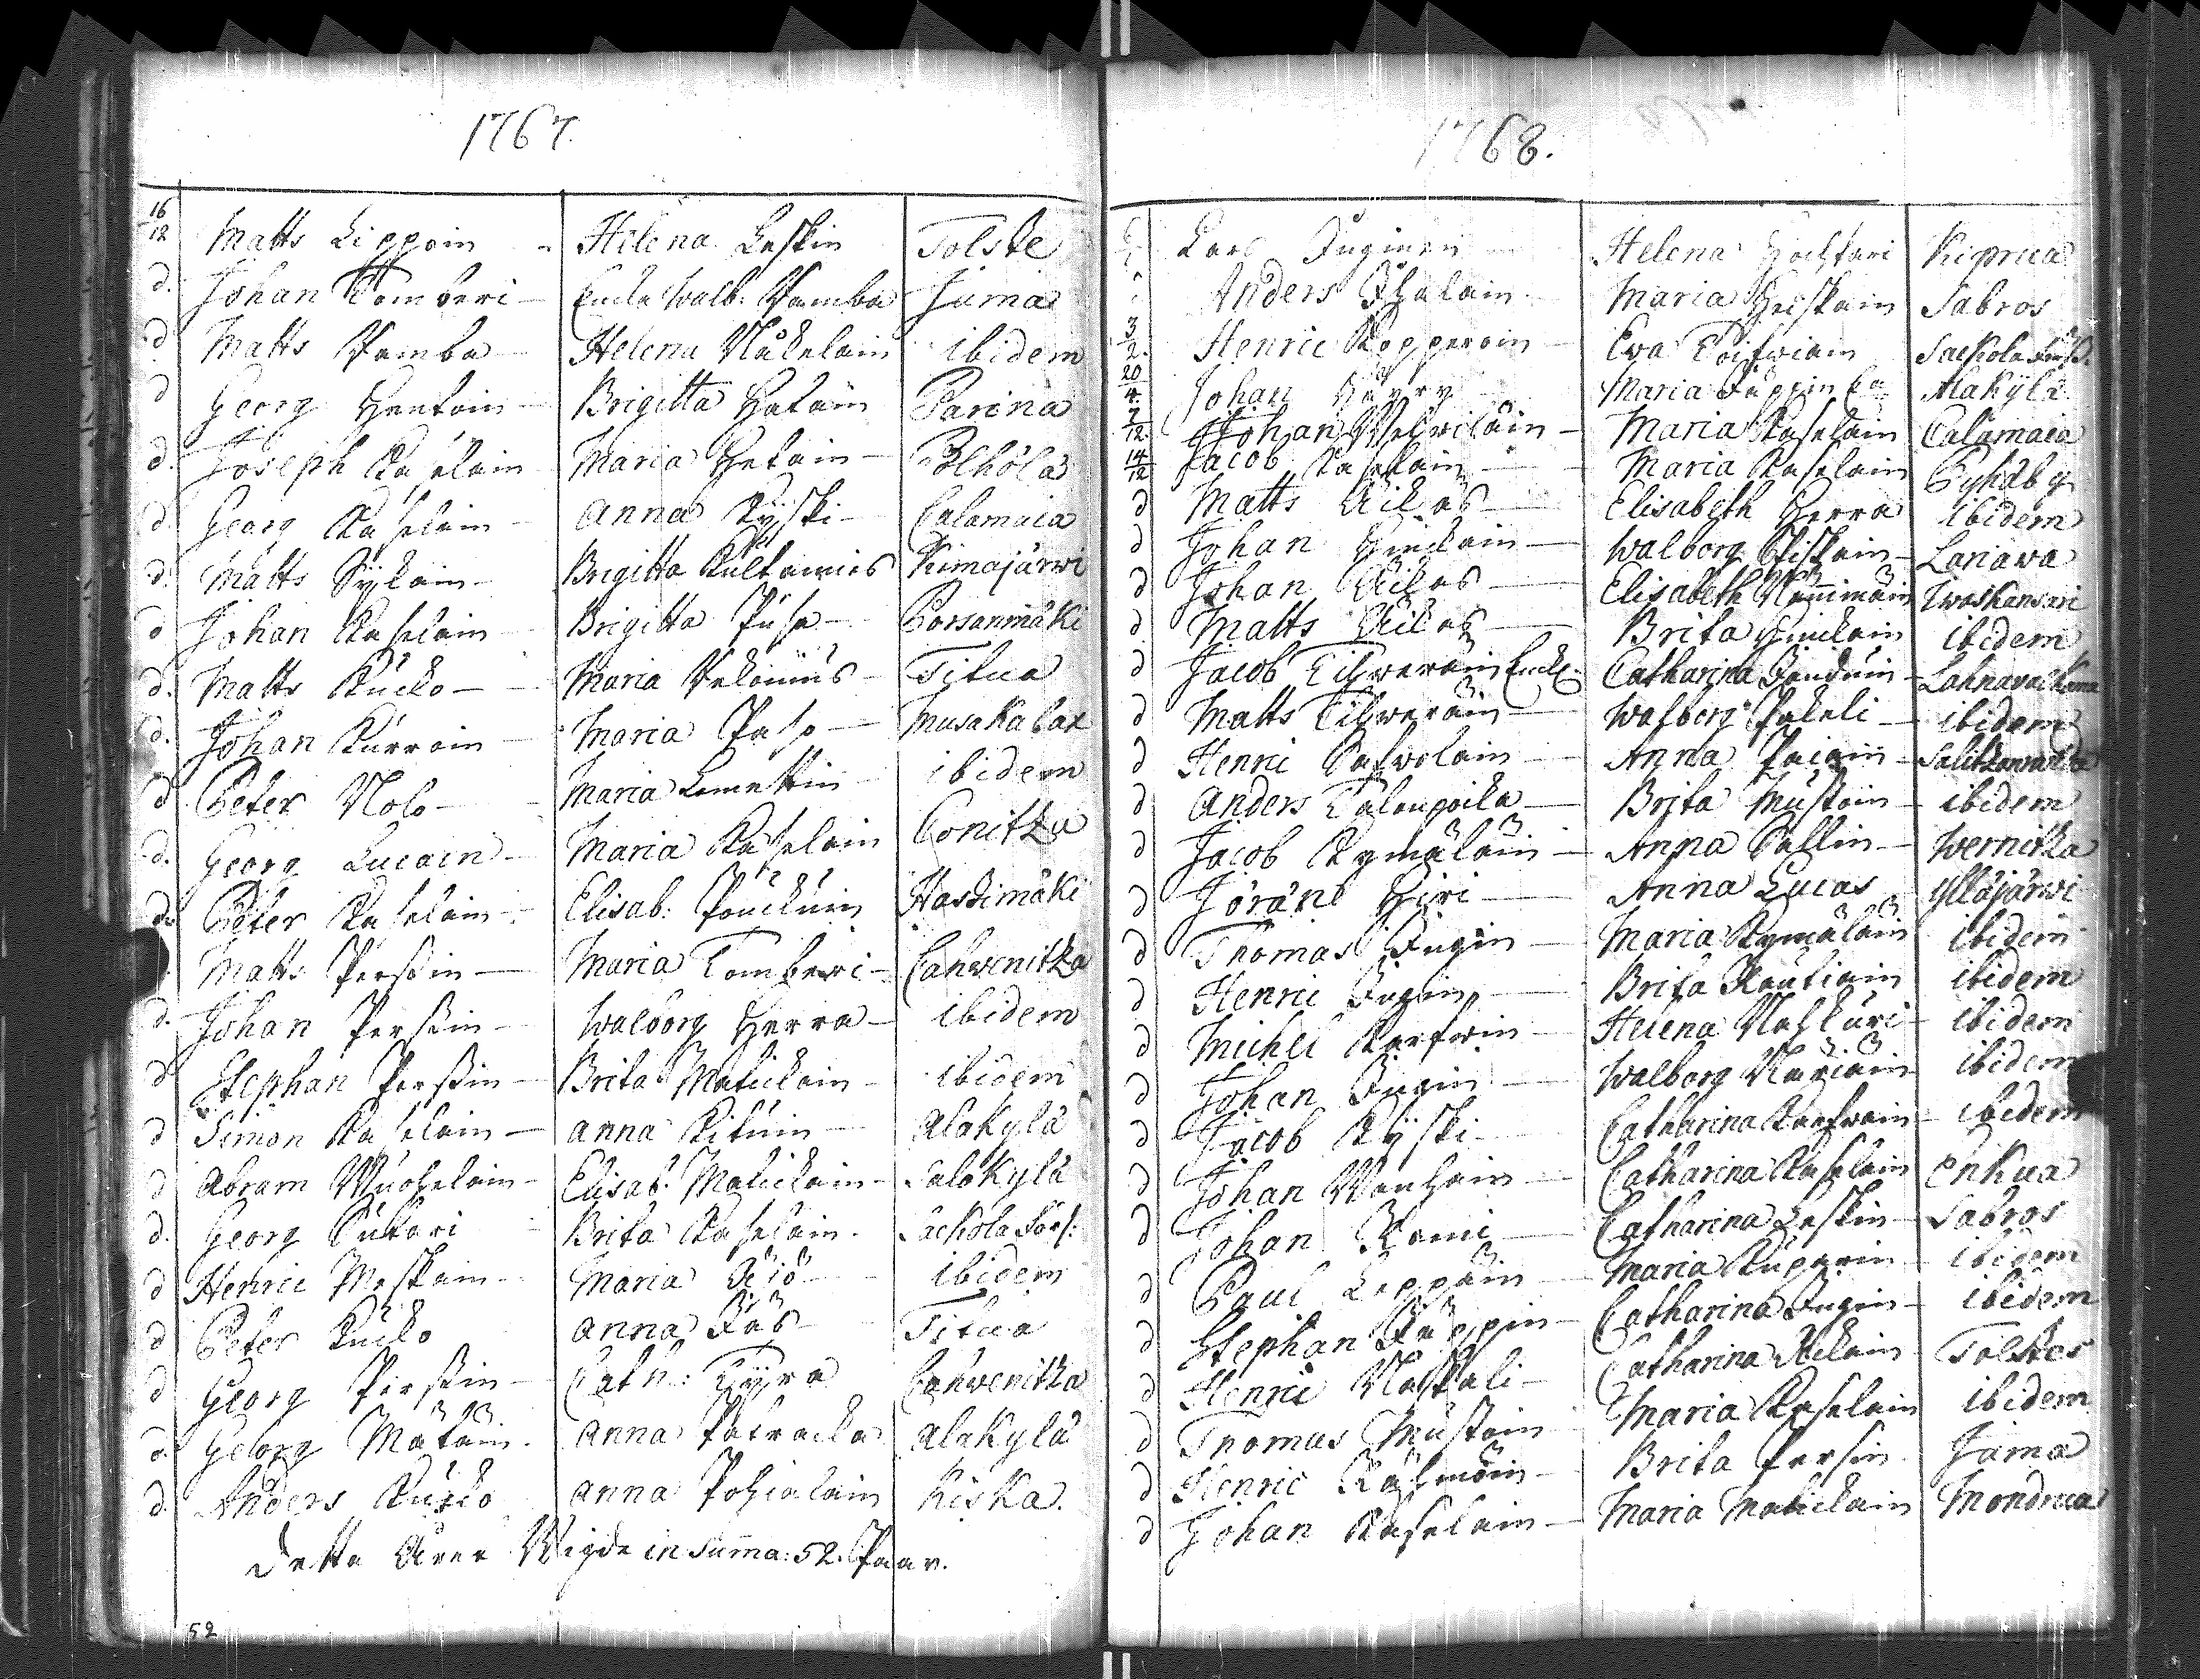 1767.
16/12 Matts Lippoin - Helena Leskin Tolske
d. Johan Tomberi - Encka Walb: Pamba Jama
d Matts Pamba - Helena Näkelain ibidem
d Georg Hentoin - Brigitta Hatain Parina
d. Joseph Kaselain Maria Hetain - Pölhölä
d Georg Kaselain - Anna Kyski - Calamaia
d. Matts Sykäin - Brigitta Kultamies Kimajärwi
d Johan Kaselain - Brigitta Pusa - Porsanmäki
d. Matts Kucko - Maria Pekoinus - Titua
d. Johan Kurroin - Maria Paso - Musakalax
d Peter Nolo - Maria Lomettin - ibidem
d. Georg Lucain - Maria Kaselain Conitza
d. Peter Kaselain - Elisab: Pouckuin Haskimäki
Matts Perssin - Maria Tomberi - Cahwenitza
d. Johan Perssin - Walborg Herra - ibidem
d Stephan Perssin - Brita Matickain - ibidem
d Simon Kaselain - Anna Rituin - Alakylä
d Abram Muchelain - Elisab. Matickain - Salokylä
d. Georg Sutari Brita Kaselain. Säckola Förs:
d Henric Moskain - Maria Äijö - ibidem
d Peter Kucko Anna Jäs - Titua
d Georg Perssin - Cath: Hyra Cahwenitza
d. Georg Mätäin. Anna Patracka Alakylä
d. Anders Kucko Anna Pohialain Kiska.
Detta Året Wigde in Summa: 52. Paar.
52
1768.
Carl Inginen Helena Hochkari Kiprua
Anders Ihalain - Maria Heiskain Sabros
3/2. Henric Kopperoin - Eva Toiwiain Säckola
20/4. Johan Häyry Maria Jäppin Alakylä
7/12. Johan Welwiläin - Maria Kaselain Calamaia
14/12 Jacob Kaselain - Maria Kaselain Pyhäby
d Matts Äikäs - Elisabeth Herra ibidem
d Johan Hinckain - Walborg Kiskain - Lariawa
d Johan Äikäs - Elisabeth Nämmäin Iwaskansari
d Matts Äikäs - Brita Hinckain ibidem
d Jacob Tilweräin Enckl. Catharina Jouduin -
d Matts Tilweräin - Walborg Pakeli - ibidem
d Henric Sawolain - Anna Paiain -
d Anders Talonpoika - Brita Mustoin - ibidem
d Jacob Kymäläin - Anna Sallin - Wernitza
d Jöränl Hiri - Anna Lucas Ylläjärwi
d Thomas Ingin - Maria Kymäläin ibidem
d Henric Ingin - Brita Rautiain ibidem
d Michel Karfwin - Helena Naskari - ibidem
d Johan Ingin - Walborg Näriäin - ibidem
d Jacob Kyski - Catharina Karfwain - ibidem
d Johan Wanhain - Catharina Kaselain Enkua
d Johan Romi - Catharina Leskin - Sabros
d Paul Leppäin - Maria Kuparin - ibidem
d Stephan Jäppin - Catharina Ingin - ibidem
d Henric Naskali - Catharina Ickain - Tolskos
d Thomas Mustoin Maria Kaselain ibidem
d Henric Kähmöin - Brita Persin Jama
d Johan Kaselain - Maria Matickain Mondrua